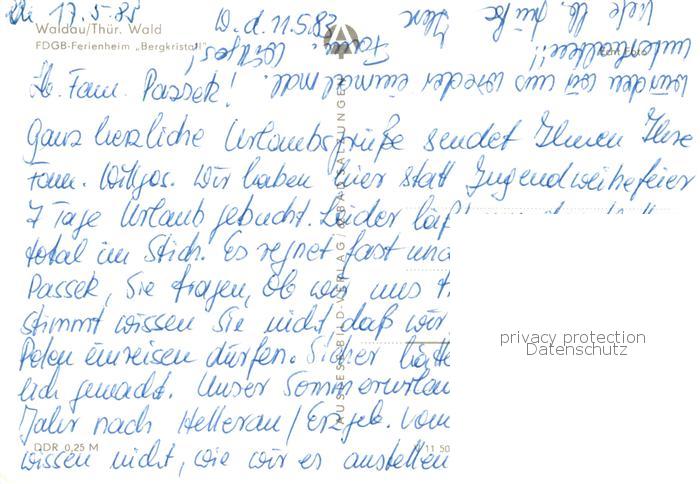 17.5.83
W. d. 11.5.83
Waldau/Thür. Wald
FDGB-Ferienheim „Bergkristall"
Echt Foto
lb. Fam. Passek!
Ganz herzliche Urlaubsgrüße sendet Ihnen Ihre
Fam. Wittgos. Wir haben hier statt Jugendweihefeier
7 Tage Urlaub gebucht. Leider läßt
total im Stich. Es regnet fast und
Passek, Sie fragen, ob wir uns
stimmt wissen Sie nicht, daß wir
Polen einreisen dürfen. Sicher hätte
lich gemacht. Unser Sommerurlau
Jahr nach Hellerau/Erzgeb. Vom
wissen nicht, wie wir es anstellen
würden wir uns wieder einmal
unterhalten!! Viele lb. Grüße Ihre
Fam. Wittgos!
AUSLESE-BILD-VERLAG
DDR 0,25 M
11 50
privacy protection
Datenschutz